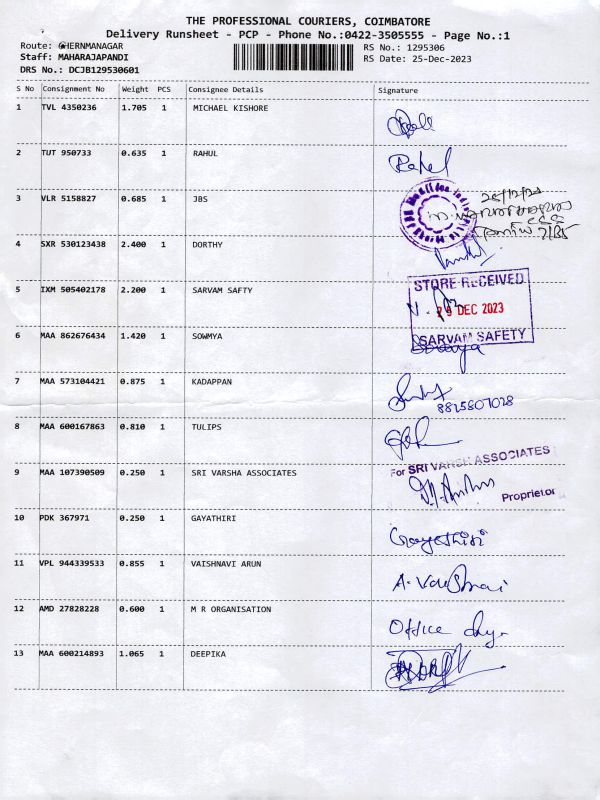 THE PROFESSIONAL COURIERS, COIMBATORE
Delivery Runsheet - PCP - Phone No.:0422-3505555 - Page No.:1
Route: CHERNMANAGAR
RS No.: 1295306
Staff: MAHARAJAPANDI
RS Date: 25-Dec-2023
DRS No.: DCJB129530601
S No Consignment No Weight PCS Consignee Details Signature
1 TVL 4350236 1.705 1 MICHAEL KISHORE
2 TUT 950733 0.635 1 RAHUL
Rahul
3 VLR 5158827 0.685 1 JBS
4 SXR 530123438 2.400 1 DORTHY
5 IXM 505402178 2.200 1 SARVAM SAFTY
STORE RECEIVED
DEC 2023
SARVAM SAFETY
6 MAA 862676434 1.420 1 SOWMYA
Sowmya
7 MAA 573104421 0.875 1 KADAPPAN
8825807028
8 MAA 600167863 0.810 1 TULIPS
9 MAA 107390509 0.250 1 SRI VARSHA ASSOCIATES
For SRI VARSHA ASSOCIATES
Proprietor
10 PDK 367971 0.250 1 GAYATHIRI
Gayathiri
11 VPL 944339533 0.855 1 VAISHNAVI ARUN
A. Vaishnavi
12 AMD 27828228 0.600 1 M R ORGANISATION
Office
13 MAA 600214893 1.065 1 DEEPIKA